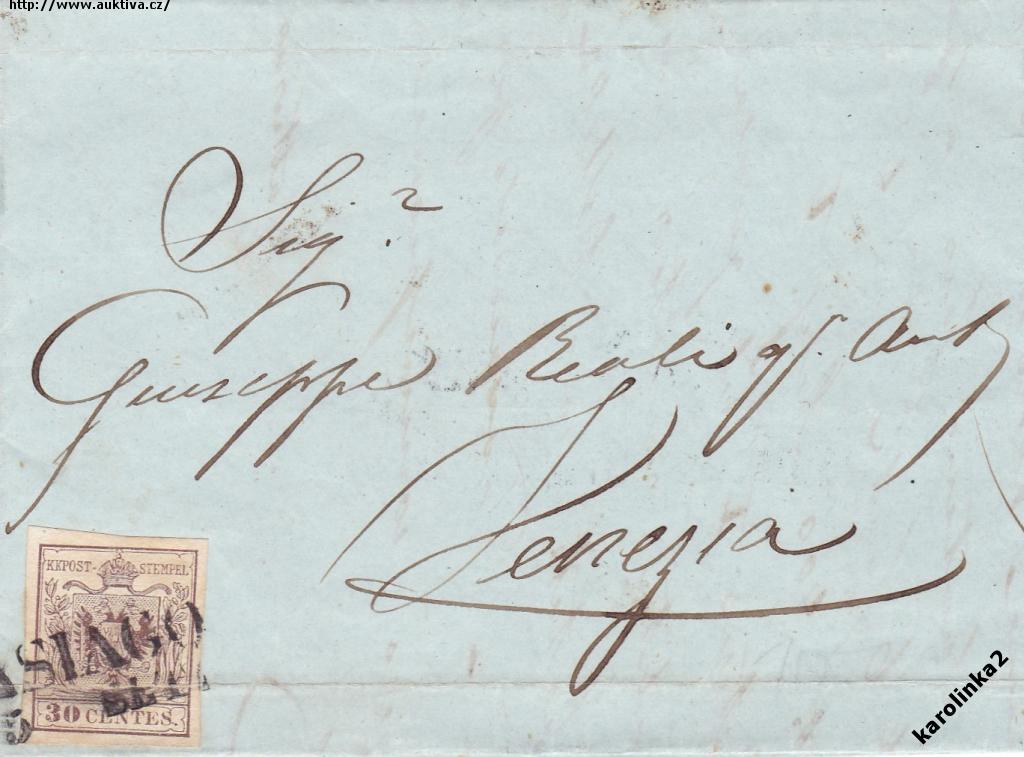 http://www.auktiva.cz/
Sig.r
Giuseppe Reali qm. Ant
Venezia
KKPOST-STEMPEL
ASIAGO
30 CENTES.
karolinka2